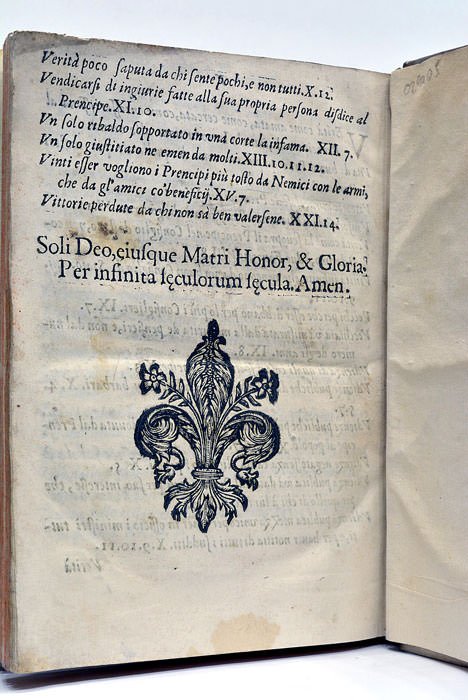 Verità poco saputa da chi sente pochi, e non tutti. X. 12.
Vendicarsi di ingiurie fatte alla sua propria persona disdice al
Prencipe. XI. 10.
Vn solo ribaldo sopportato in vna corte la infama. XII. 7.
Vn solo giustitiato ne emenda molti. XIII. 10. 11. 12.
Vinti esser vogliono i Prencipi più tosto da Nemici con le armi,
che da gl'amici co' beneficij. XV. 7.
Vittorie perdute da chi non sà ben valersene. XXI. 14.
Soli Deo, eiusque Matri Honor, & Gloria.
Per infinita sęculorum sęcula. Amen.